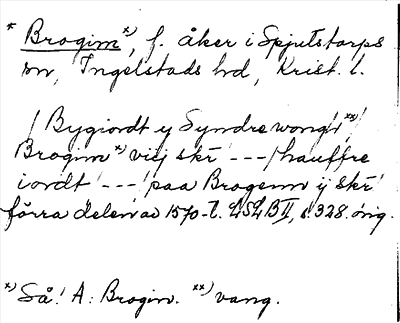 * Brogim x), f. åker i Spjutstorps
sn, Ingelstads hd, Krist. l.
/ Bygiordt y Syndre wong'i xx) /
Brogim x) viij skr' --- / hauffre
iordt --- / paa Brogenn ij skr'
förra delen av 1570-t. LSLB II, s. 328. orig.
x) Så! A: Brogin. xx) vang.